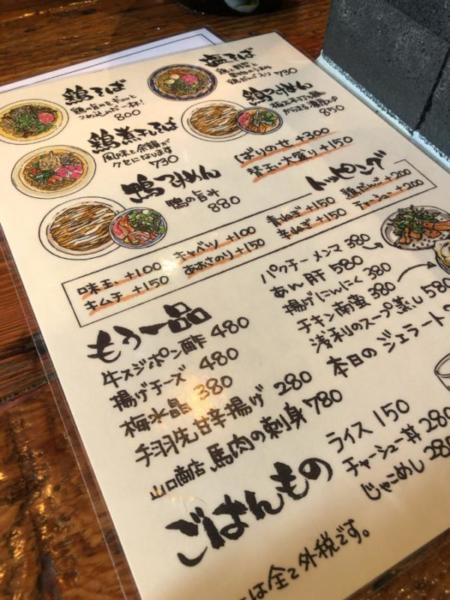 鶏そば
800
塩そば
780
鶏煮干しそば
風味と余韻が
クセになり〼
730
鶏つけめん
850
鴨つけめん
鴨の旨汁
880
ばりのせ +300
替玉・大盛り +150
トッピング
味玉 +100
キャベツ +100
青ねぎ +150
鶏だんご +200
キムチ +150
あおさのり +150
辛ねぎ +150
チャーシュー +200
もう一品
牛スジポン酢 480
揚げチーズ 480
梅水晶 380
手羽先甘辛揚げ 280
山口商店 馬肉の刺身 780
パクチーメンマ 380
あん肝 580
揚げにんにく 380
チキン南蛮 380
浅利のスープ蒸し 580
本日のジェラート
ごはんもの
ライス 150
チャーシュー丼 280
じゃこめし 280
は全て外税です。